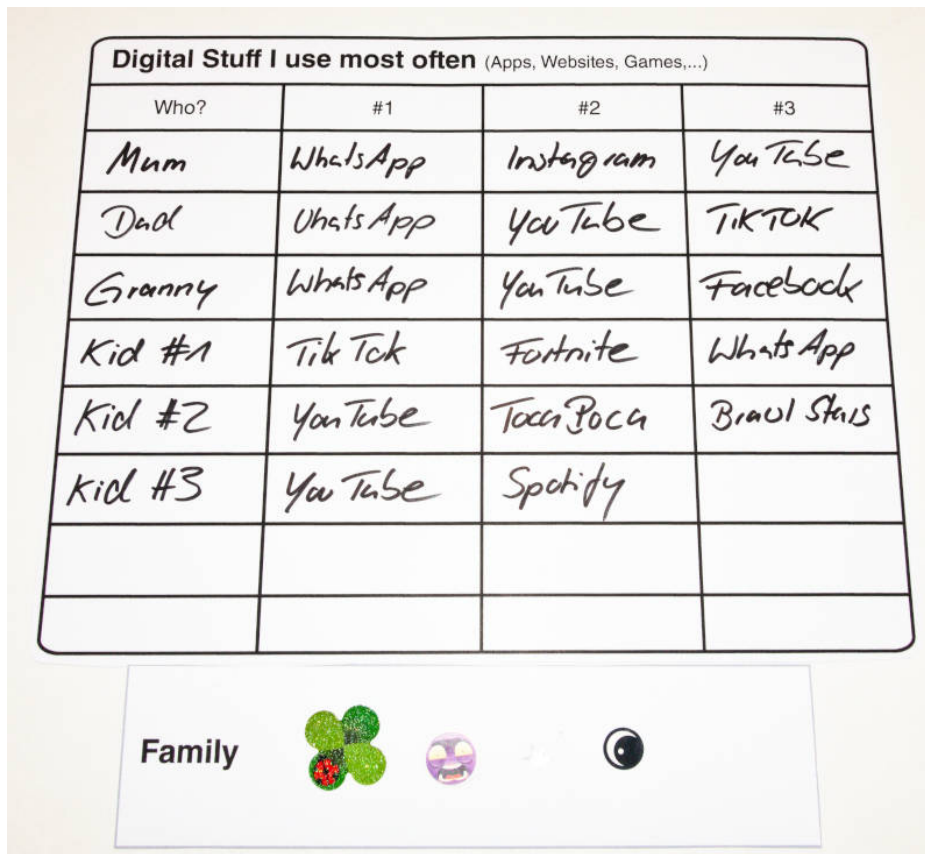 Digital Stuff I use most often (Apps, Websites, Games,...)
Who? #1 #2 #3
Mum WhatsApp Instagram YouTube
Dad WhatsApp YouTube TikTOK
Granny WhatsApp YouTube Facebook
Kid #1 TikTok Fortnite WhatsApp
Kid #2 YouTube Toca Boca Brawl Stars
Kid #3 YouTube Spotify
Family